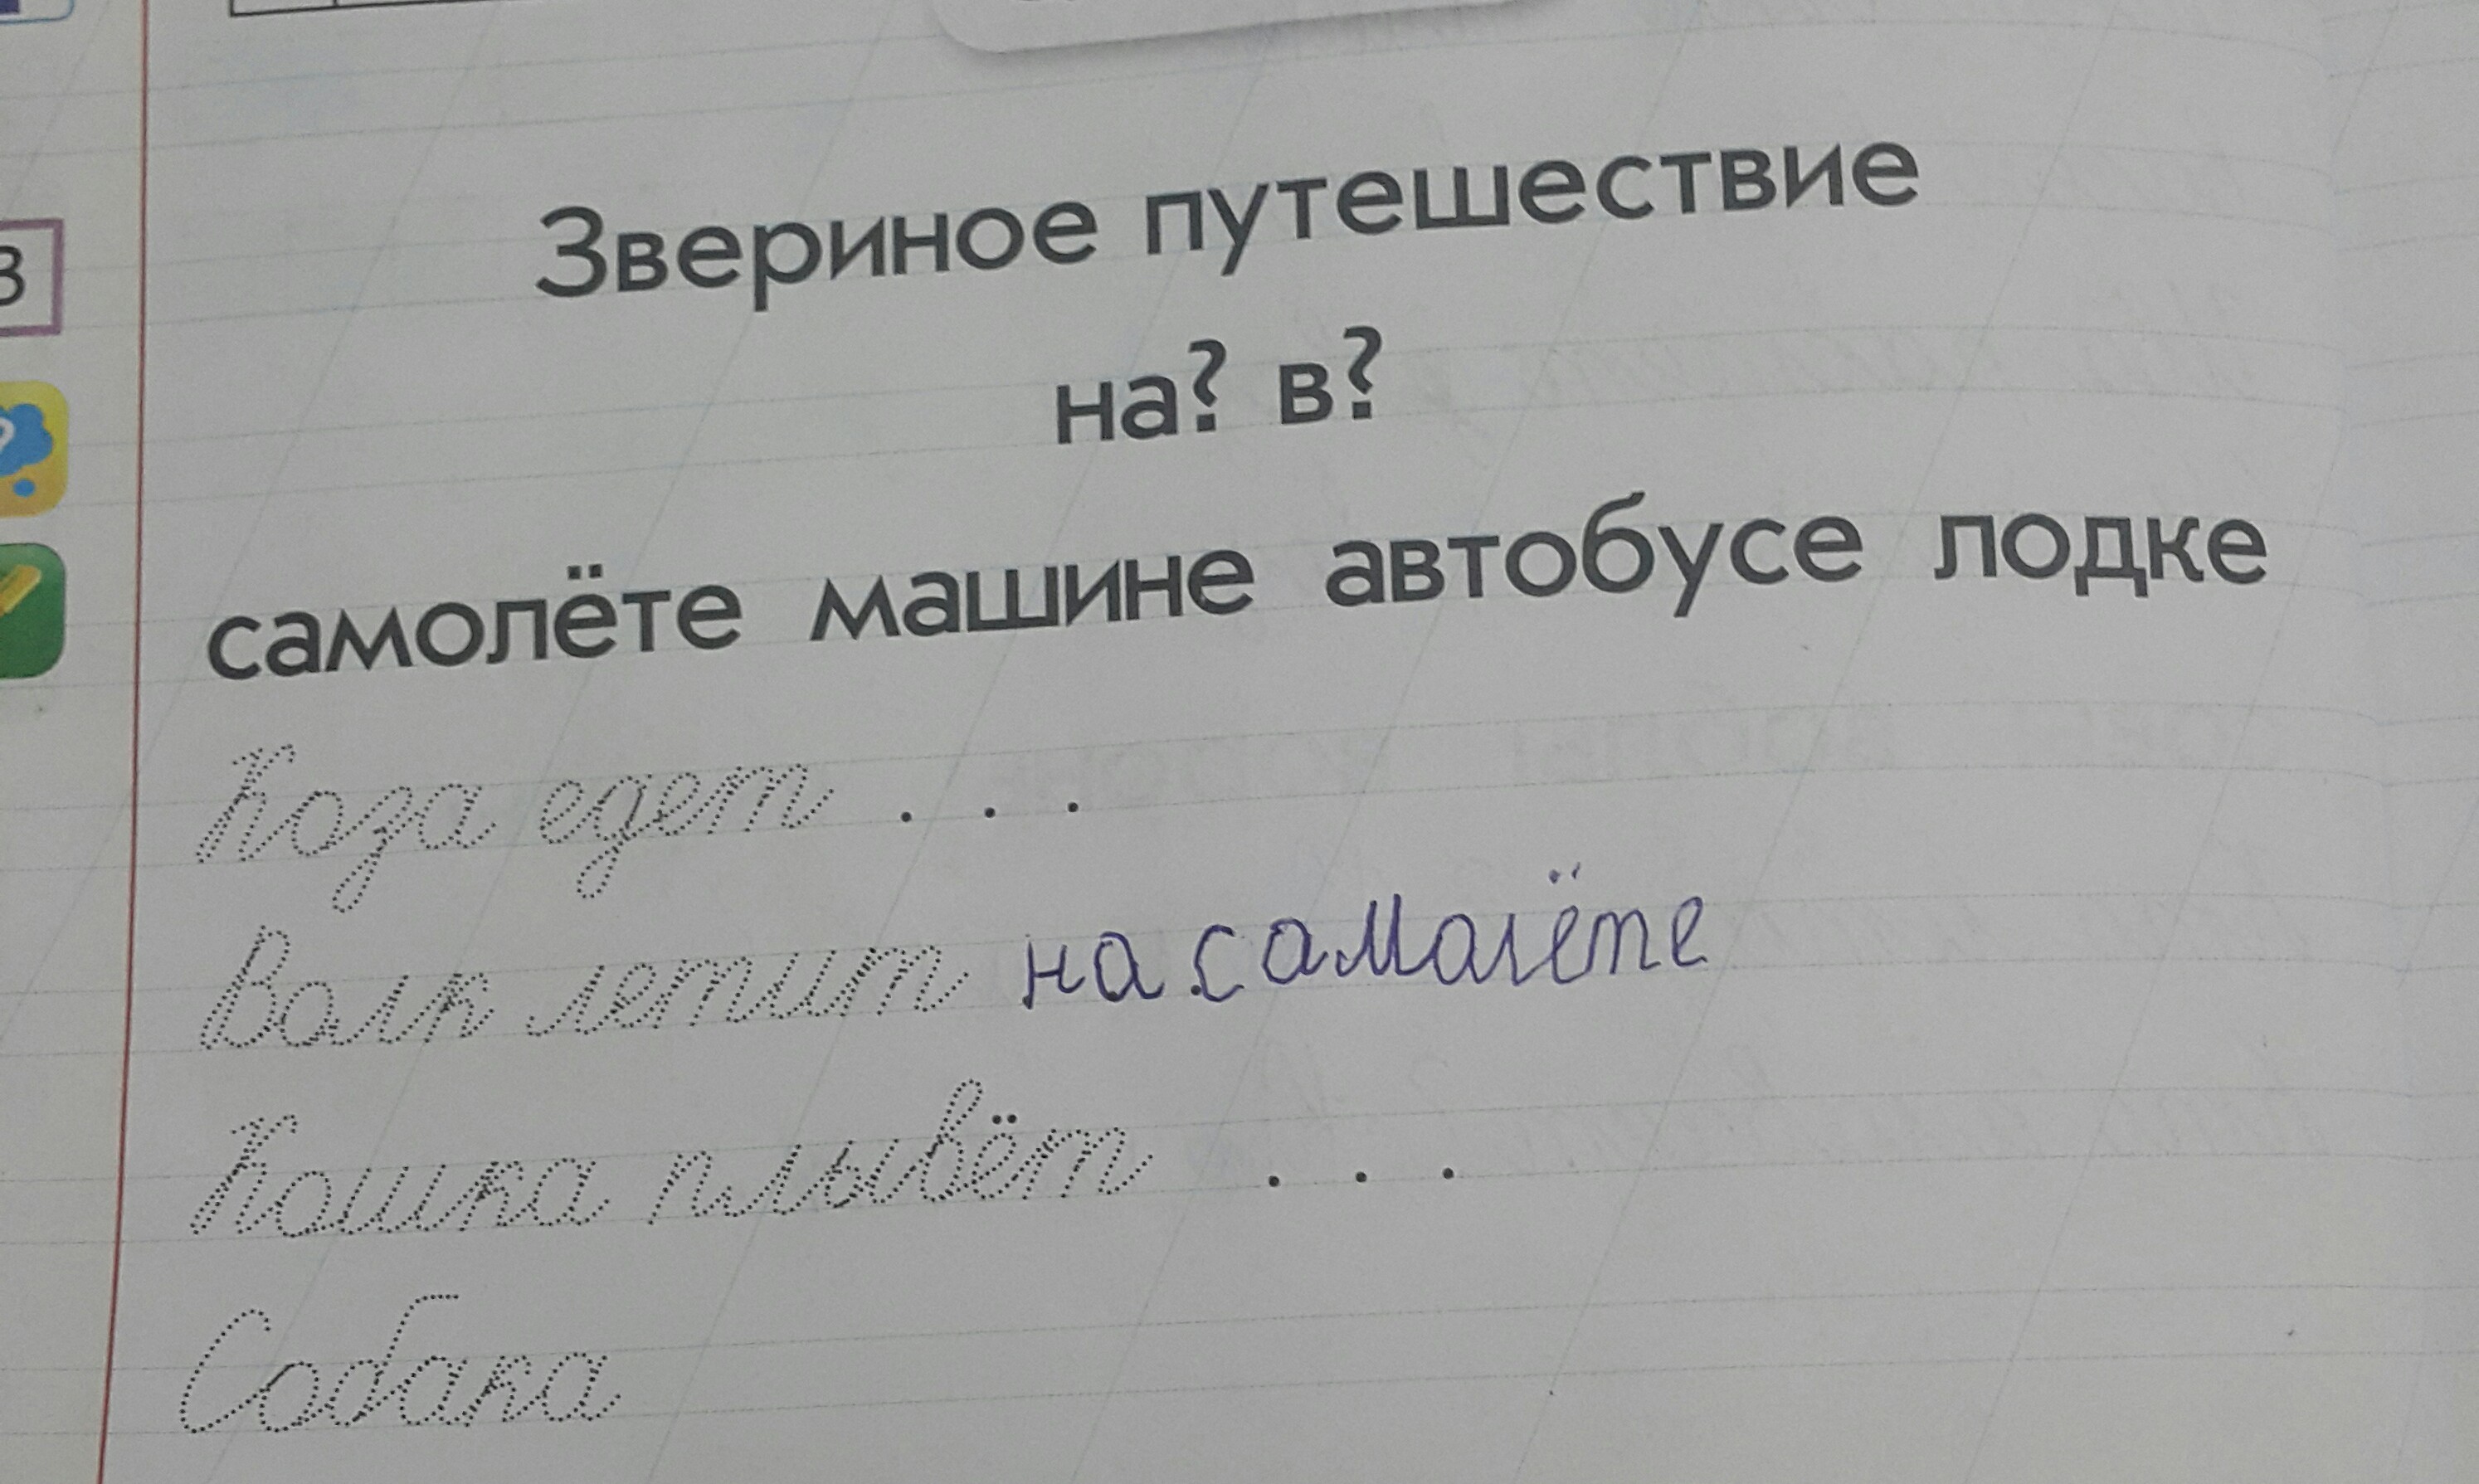 Звериное путешествие
на? в?
самолёте машине автобусе лодке
Коза едет . . .
Волк летит на самолёте
Кошка плывёт . . .
Собака